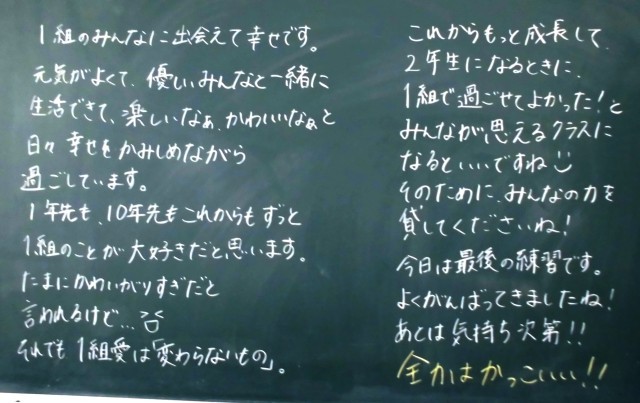 1組のみんなに出会えて幸せです。
元気がよくて、優しいみんなと一緒に
生活できて、楽しいなぁ、かわいいなぁと
日々幸せをかみしめながら
過ごしています。
1年先も、10年先もこれからもずっと
1組のことが大好きだと思います。
たまにかわいがりすぎだと
言われるけど…
それでも1組愛は「変わらないもの」。
これからもっと成長して、
2年生になるときに、
1組で過ごせてよかった!と
みんなが思えるクラスに
なるといいですね
そのために、みんなの力を
貸してくださいね!
今日は最後の練習です。
よくがんばってきましたね!
あとは気持ち次第!!
全力はかっこいい!!